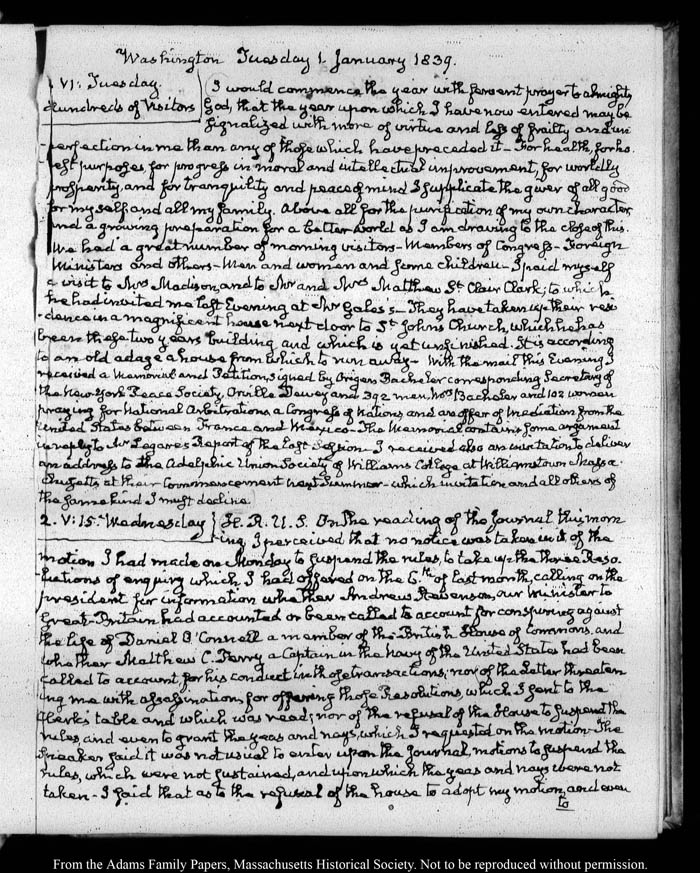 Washington Tuesday 1. January 1839.
1. VI: Tuesday.
Hundreds of Visitors
I would commence the year with fervent prayer to almighty
God, that the year upon which I have now entered may be
signalized with more of virtue and less of frailty and im-
-perfection in me than any of those which have preceded it – For health, for ho-
nest purposes for progress in moral and intellectual improvement, for worldly
prosperity, and for tranquility and peace of mind I supplicate the giver of all good
for myself and all my family. Above all for the purification of my own character,
and a growing preparation for a better world as I am drawing to the close of this.
We had a great number of morning visitors – Members of Congress – Foreign
Ministers and others – Men and women and some children – I paid myself
a visit to Mrs Madison, and to Mr and Mrs Matthew St. Clair Clark; to which
he had invited me last Evening at Mr Gales's – They have taken up their resi-
-dence in a magnificent house next door to St Johns Church, which he has
been these two years building and which is yet unfinished. It is according
to an old adage a house from which to run away – With the mail this Evening I
received a Memorial and Petition, signed by Origen Bachelor corresponding Secretary of
the New York Peace Society, Orville Dewey and 392 men, Mrs Bachelor and 102 women
praying for National Arbitration, a Congress of Nations, and an offer of mediation from the
United States between France and Mexico – The Memorial contains some argument
in reply to Mr Legare's Report of the last Session – I received also an invitation to deliver
an address to the Adelphic Union Society of Williams College at Williamstown Massa-
chusetts at their Commencement next Summer – which invitation and all others of
the same kind I must decline.
2. V: 15. Wednesday
H. R. U. S. On the reading of the Journal this morn-
ing, I perceived that no notice was taken in it, of the
motion I had made on Monday to suspend the rules, to take up the three Reso-
-lutions of enquiry which I had offered on the 6th of last month, calling on the
president for information whether Andrew Stevenson, our Minister to
Great-Britain had accounted or been called to account for conspiring against
the life of Daniel O'Connell a member of the British House of Commons, and
whether Matthew C. Perry a Captain in the Navy of the United States had been
called to account, for his conduct in those transactions; nor of the Letter threaten-
ing me with assassination, for offering those Resolutions, which I sent to the
Clerk's table and which was read; nor of the refusal of the House to suspend the
rules, and even to grant the yeas and nays, which I requested on the motion – The
Speaker said it was not usual to enter upon the Journal, motions to suspend the
rules, which were not sustained, and upon which the yeas and nays were not
taken – I said that as to the refusal of the house to adopt my motion, and even
to
From the Adams Family Papers, Massachusetts Historical Society. Not to be reproduced without permission.